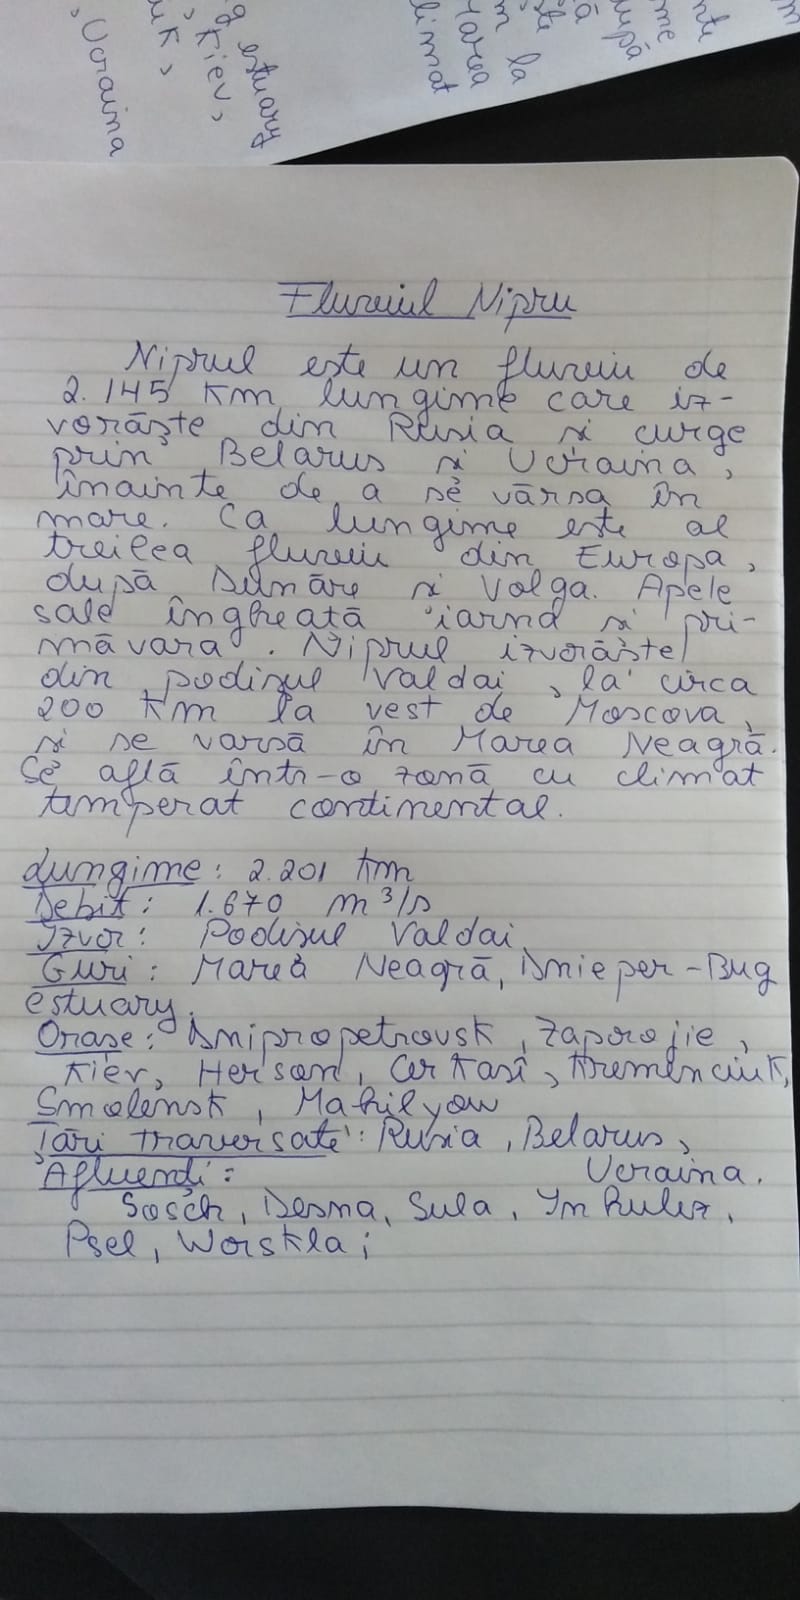 Ucraina
uk,
Kiev,
estuary
limat
Marea
m la
ste
ă
upă
me
nte
m
Fluviul Nipru
Niprul este un fluviu de
2.145 Km lungime care iz-
vorăște din Rusia și curge
prin Belarus și Ucraina,
înainte de a se vărsa în
mare. Ca lungime este al
treilea fluviu din Europa,
după Dunăre și Volga. Apele
sale îngheață iarna și pri-
măvara. Niprul izvorăște
din podișul Valdai, la circa
200 Km la vest de Moscova,
și se varsă în Marea Neagră.
Se află într-o zonă cu climat
temperat continental.
Lungime: 2.201 Km
Debit: 1.670 m³/s
Izvor: Podișul Valdai
Guri: Marea Neagră, Dnieper-Bug
estuary.
Orașe: Dnipropetrovsk, Zaporojie,
Kiev, Herson, Cerkasî, Kremenciuk,
Smolensk, Mahilyow
Țări traversate: Rusia, Belarus,
Ucraina.
Afluenți:
Sosch, Desna, Sula, Inhulez,
Psel, Worskla;